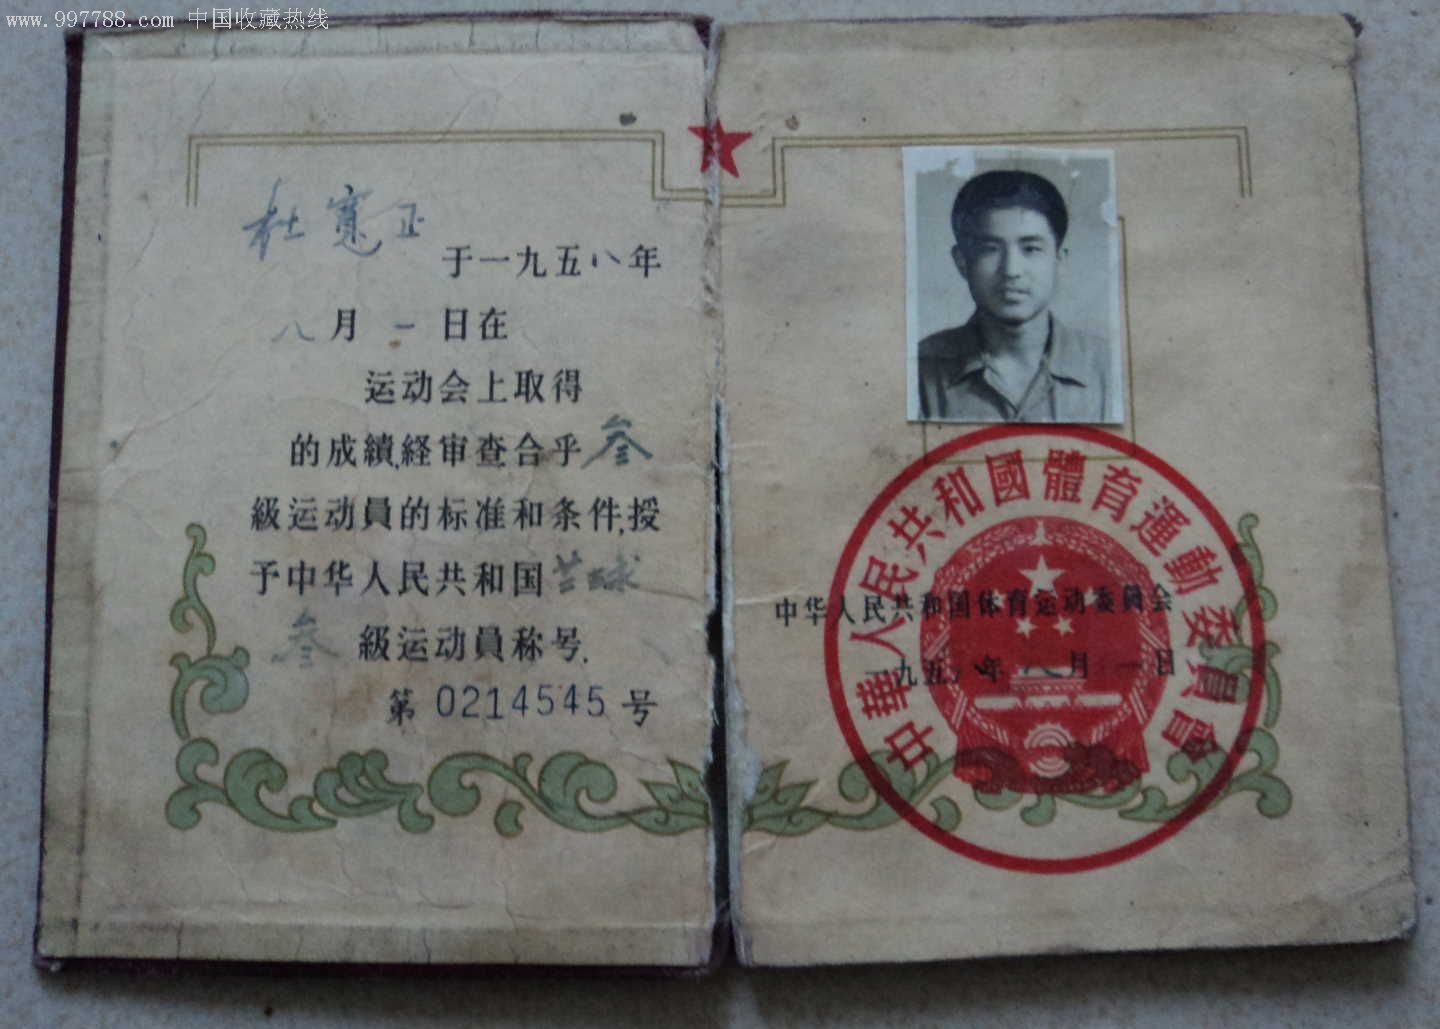 www.997788.com 中国收藏热线
杜寬正
于一九五八年
八月一日在
运动会上取得
的成績,経审查合乎叁
級运动員的标准和条件,授
予中华人民共和国籃球
叁級运动員称号.
第0214545号
中華人民共和國體育運動委員會
中华人民共和国体育运动委員会
一九五八年八月一日